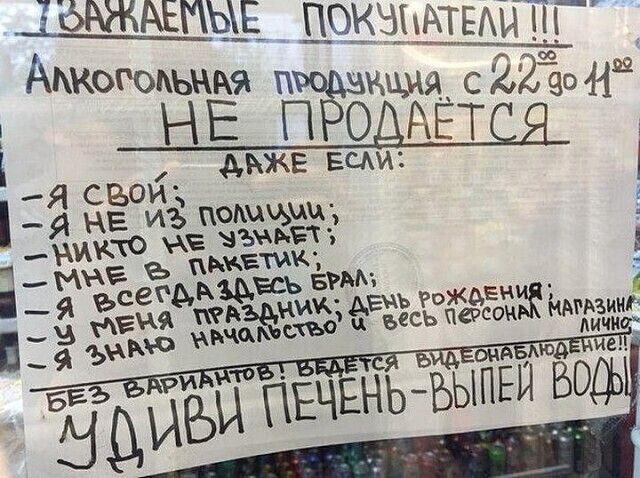 УВАЖАЕМЫЕ ПОКУПАТЕЛИ!!!
Алкогольная продукция с 22⁰⁰ до 11⁰⁰
НЕ ПРОДАЁТСЯ
ДАЖЕ ЕСЛИ:
- Я СВОЙ;
- Я НЕ ИЗ ПОЛИЦИИ;
- НИКТО НЕ УЗНАЕТ;
- МНЕ В ПАКЕТИК;
- Я ВСЕГДА ЗДЕСЬ БРАЛ;
- У МЕНЯ ПРАЗДНИК; ДЕНЬ РОЖДЕНИЯ;
- Я ЗНАЮ НАЧАЛЬСТВО И ВЕСЬ ПЕРСОНАЛ МАГАЗИНА
ЛИЧНО;
БЕЗ ВАРИАНТОВ! ВЕДЁТСЯ ВИДЕОНАБЛЮДЕНИЕ!!
УДИВИ ПЕЧЕНЬ-ВЫПЕЙ ВОДЫ